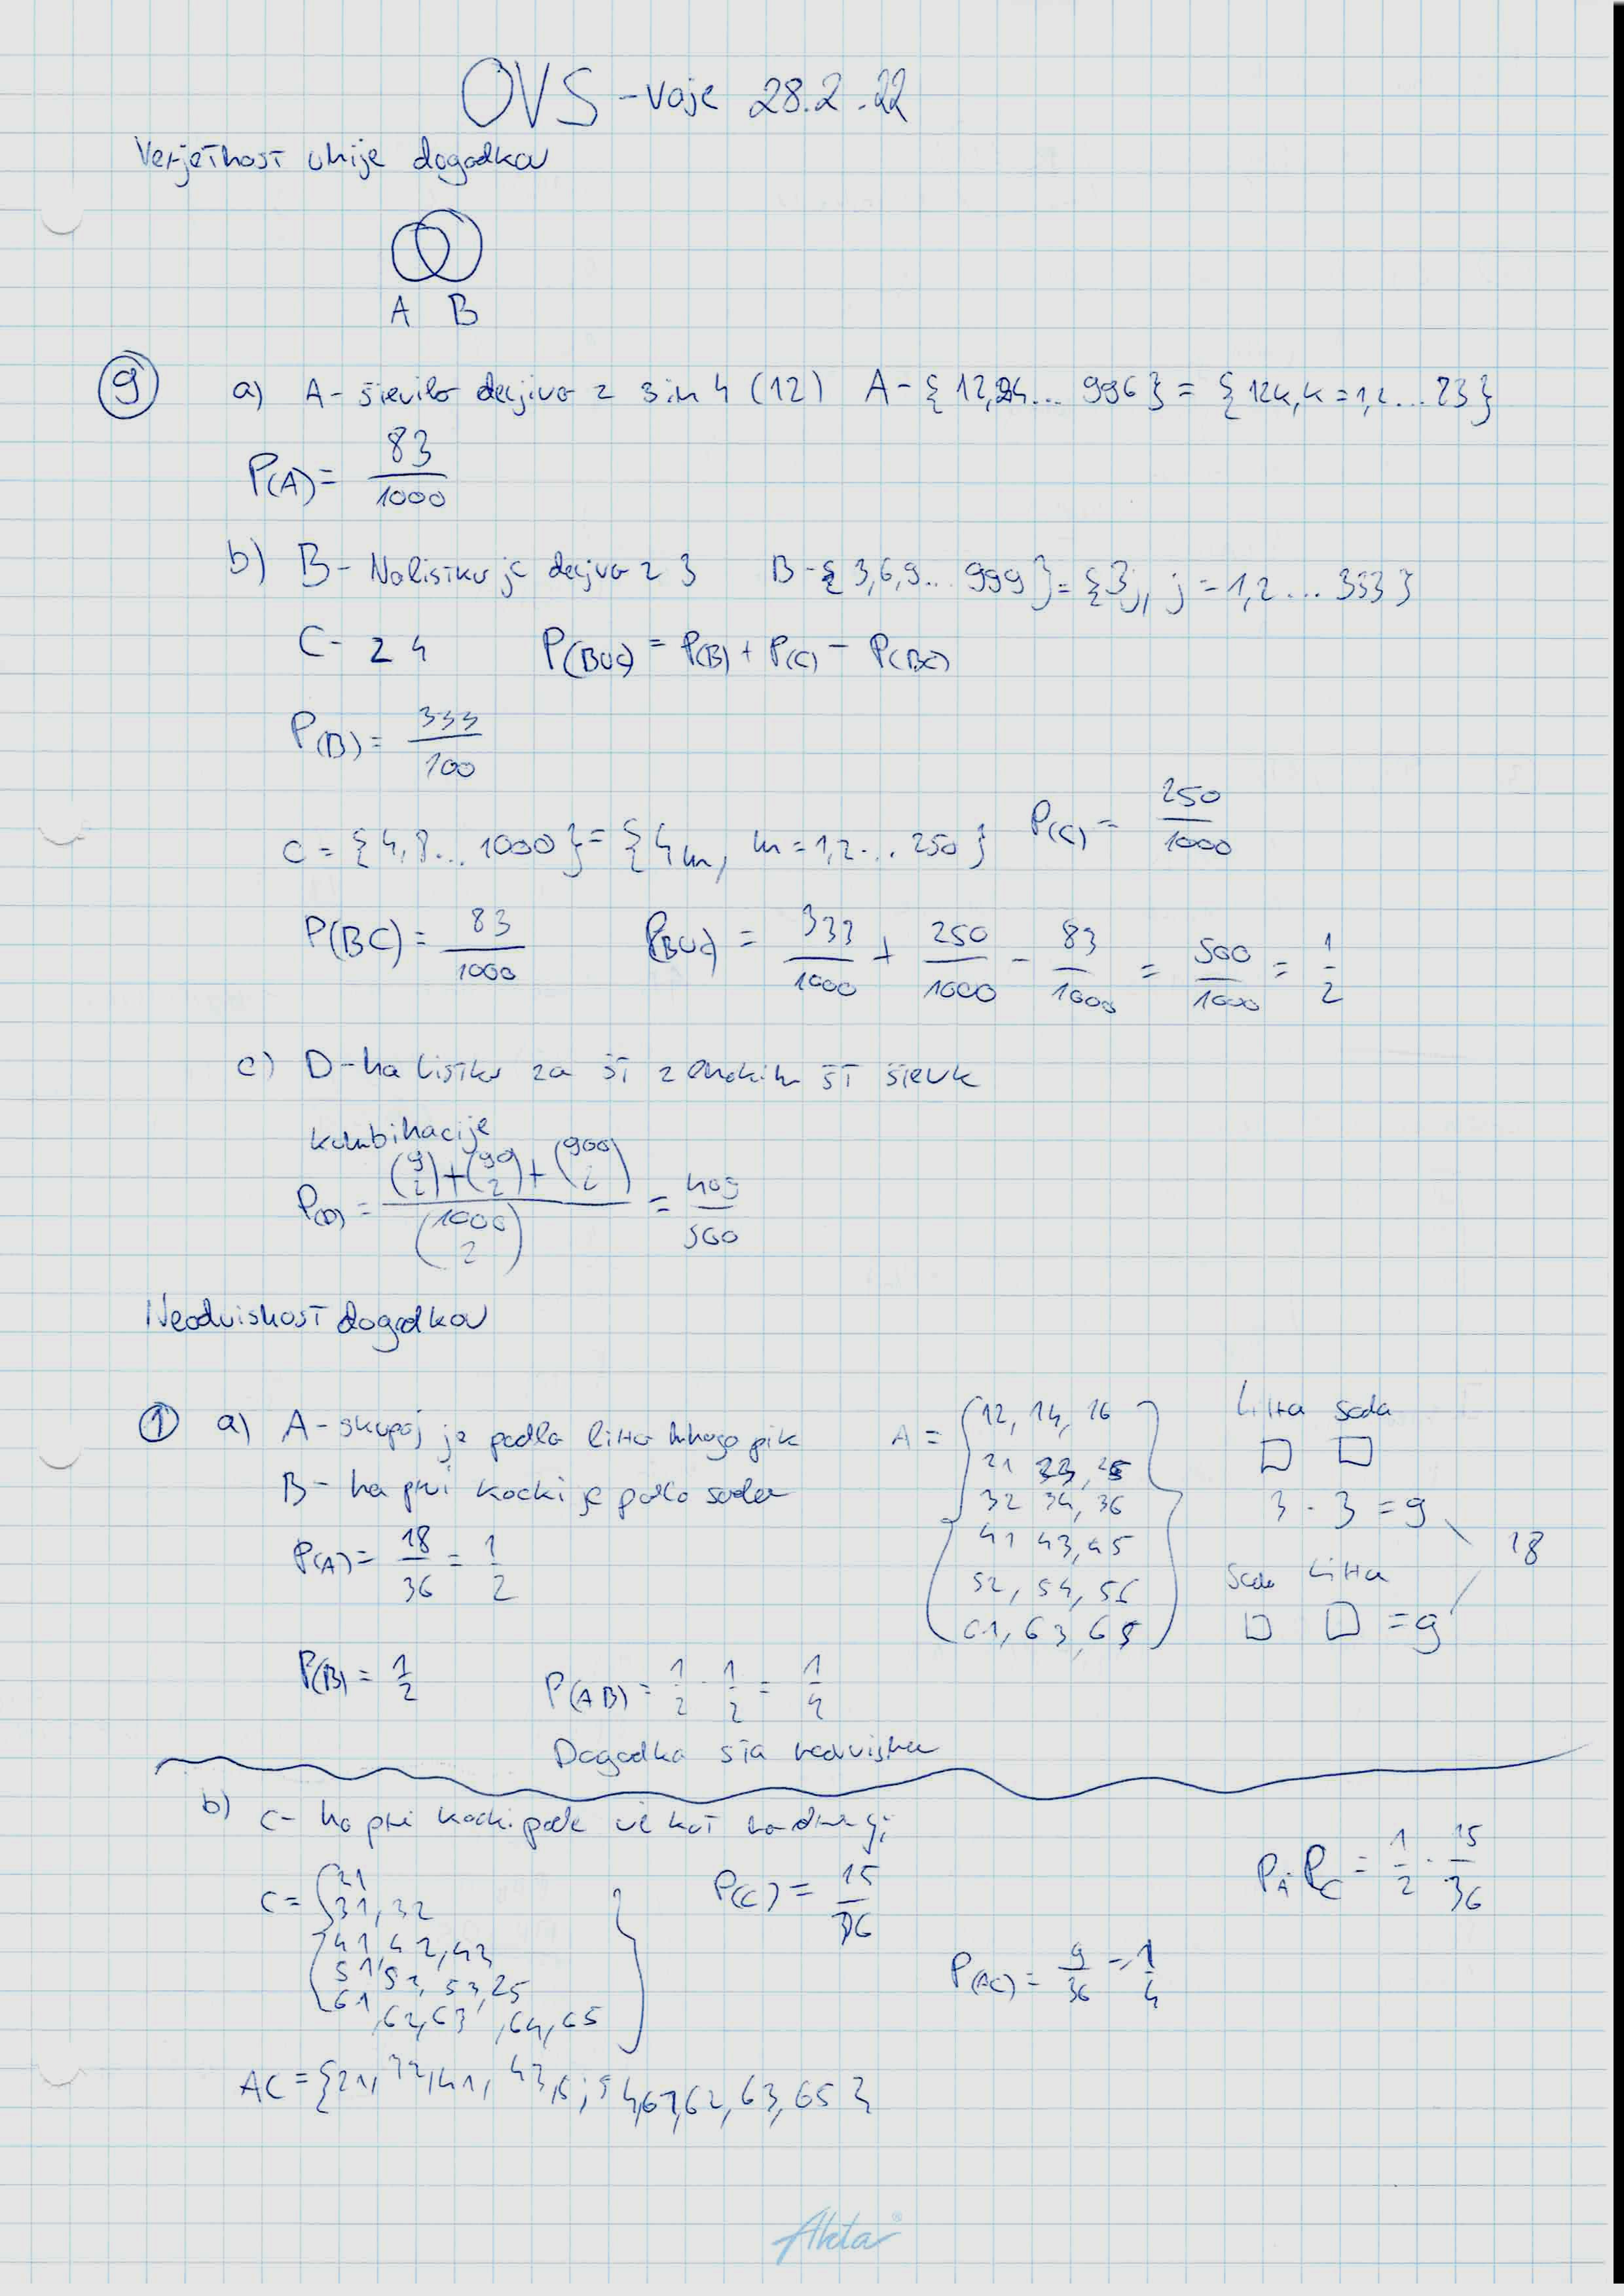 OVS - vaje 28.2.22
Verjetnost unije dogodkov
A B
9 a) A - število deljivo z 3 in 4 (12) A - {12,24... 996} = {12k, k = 1,2...83}
P(A) = 83/1000
b) B - Na listku je deljivo z 3 B - {3,6,9... 999} = {3j, j = 1,2...333}
C - z 4 P(BUC) = P(B) + P(C) - P(BC)
P(B) = 333/100
C = {4,8...1000} = {4m, m = 1,2...250} P(C) = 250/1000
P(BC) = 83/1000 P(BUC) = 333/1000 + 250/1000 - 83/1000 = 500/1000 = 1/2
c) D - na listku za št z enakim št števk
kombinacije
P(D) = ((9 2) + (90 2) + (900 2))/(1000 2) = 409/500
Neodvisnost dogodkov
1 a) A - skupaj je padlo liho mnogo pik
B - na prvi kocki je padlo sodo
A = {12, 14, 16
21 23, 25
32 34, 36
41 43, 45
52, 54, 56
61, 63, 65}
Liha soda
3 · 3 = 9
18
Soda Liha
= 9
P(A) = 18/36 = 1/2
P(B) = 1/2 P(AB) = 1/2 · 1/2 = 1/4
Dogodka sta neodvisna
b) C - na prvi kocki pade več kot na drugi
C = {21
31, 32
41, 42, 43
51, 52, 53, 25
61, 62, 63, 64, 65}
P(C) = 15/36
PA · PC = 1/2 · 15/36
P(AC) = 9/36 = 1/4
AC = {21, 32, 41, 43, 54, 61, 62, 63, 65}
Akta